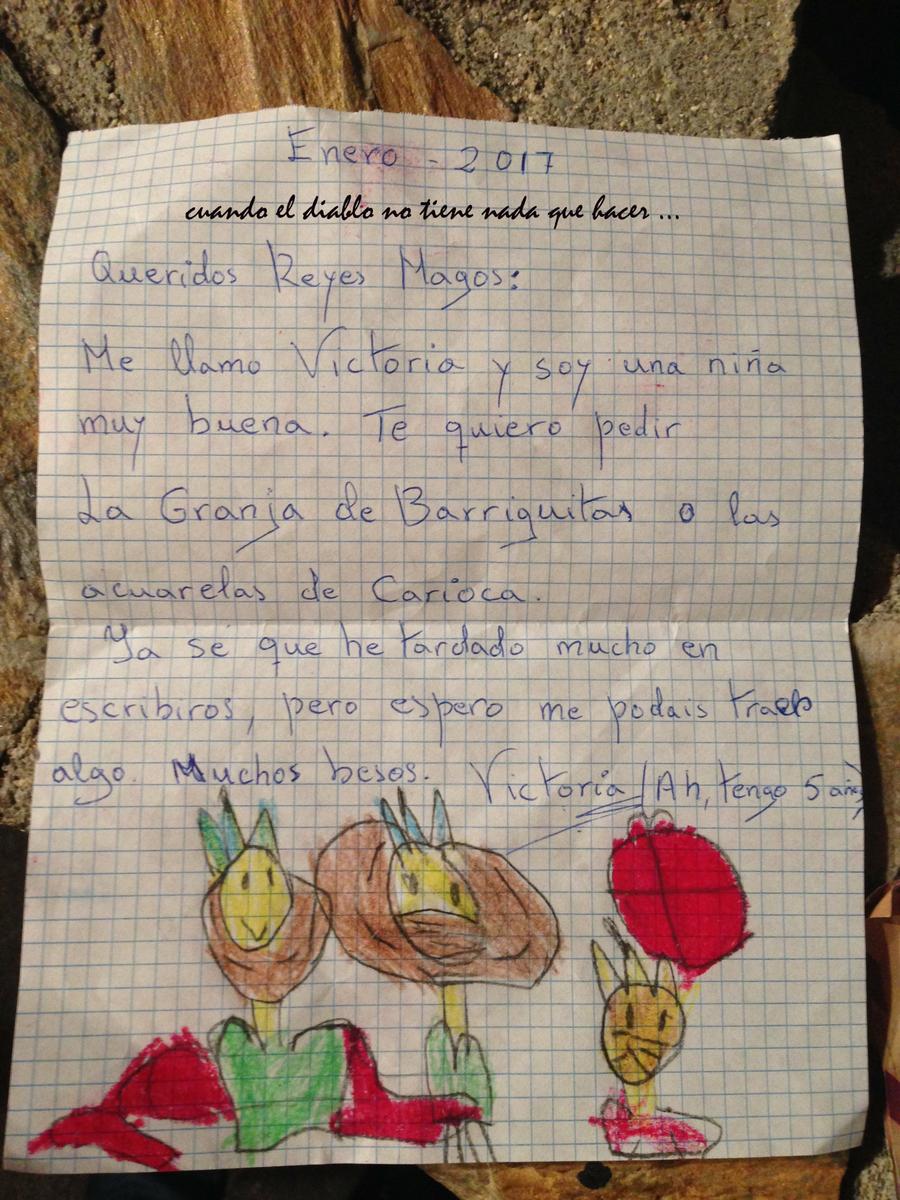 Enero - 2017
cuando el diablo no tiene nada que hacer ...
Queridos Reyes Magos:
Me llamo Victoria y soy una niña
muy buena. Te quiero pedir
La Granja de Barriguitas o las
acuarelas de Carioca.
Ya sé que he tardado mucho en
escribiros, pero espero me podais traer
algo. Muchos besos. Victoria (Ah, tengo 5 años)